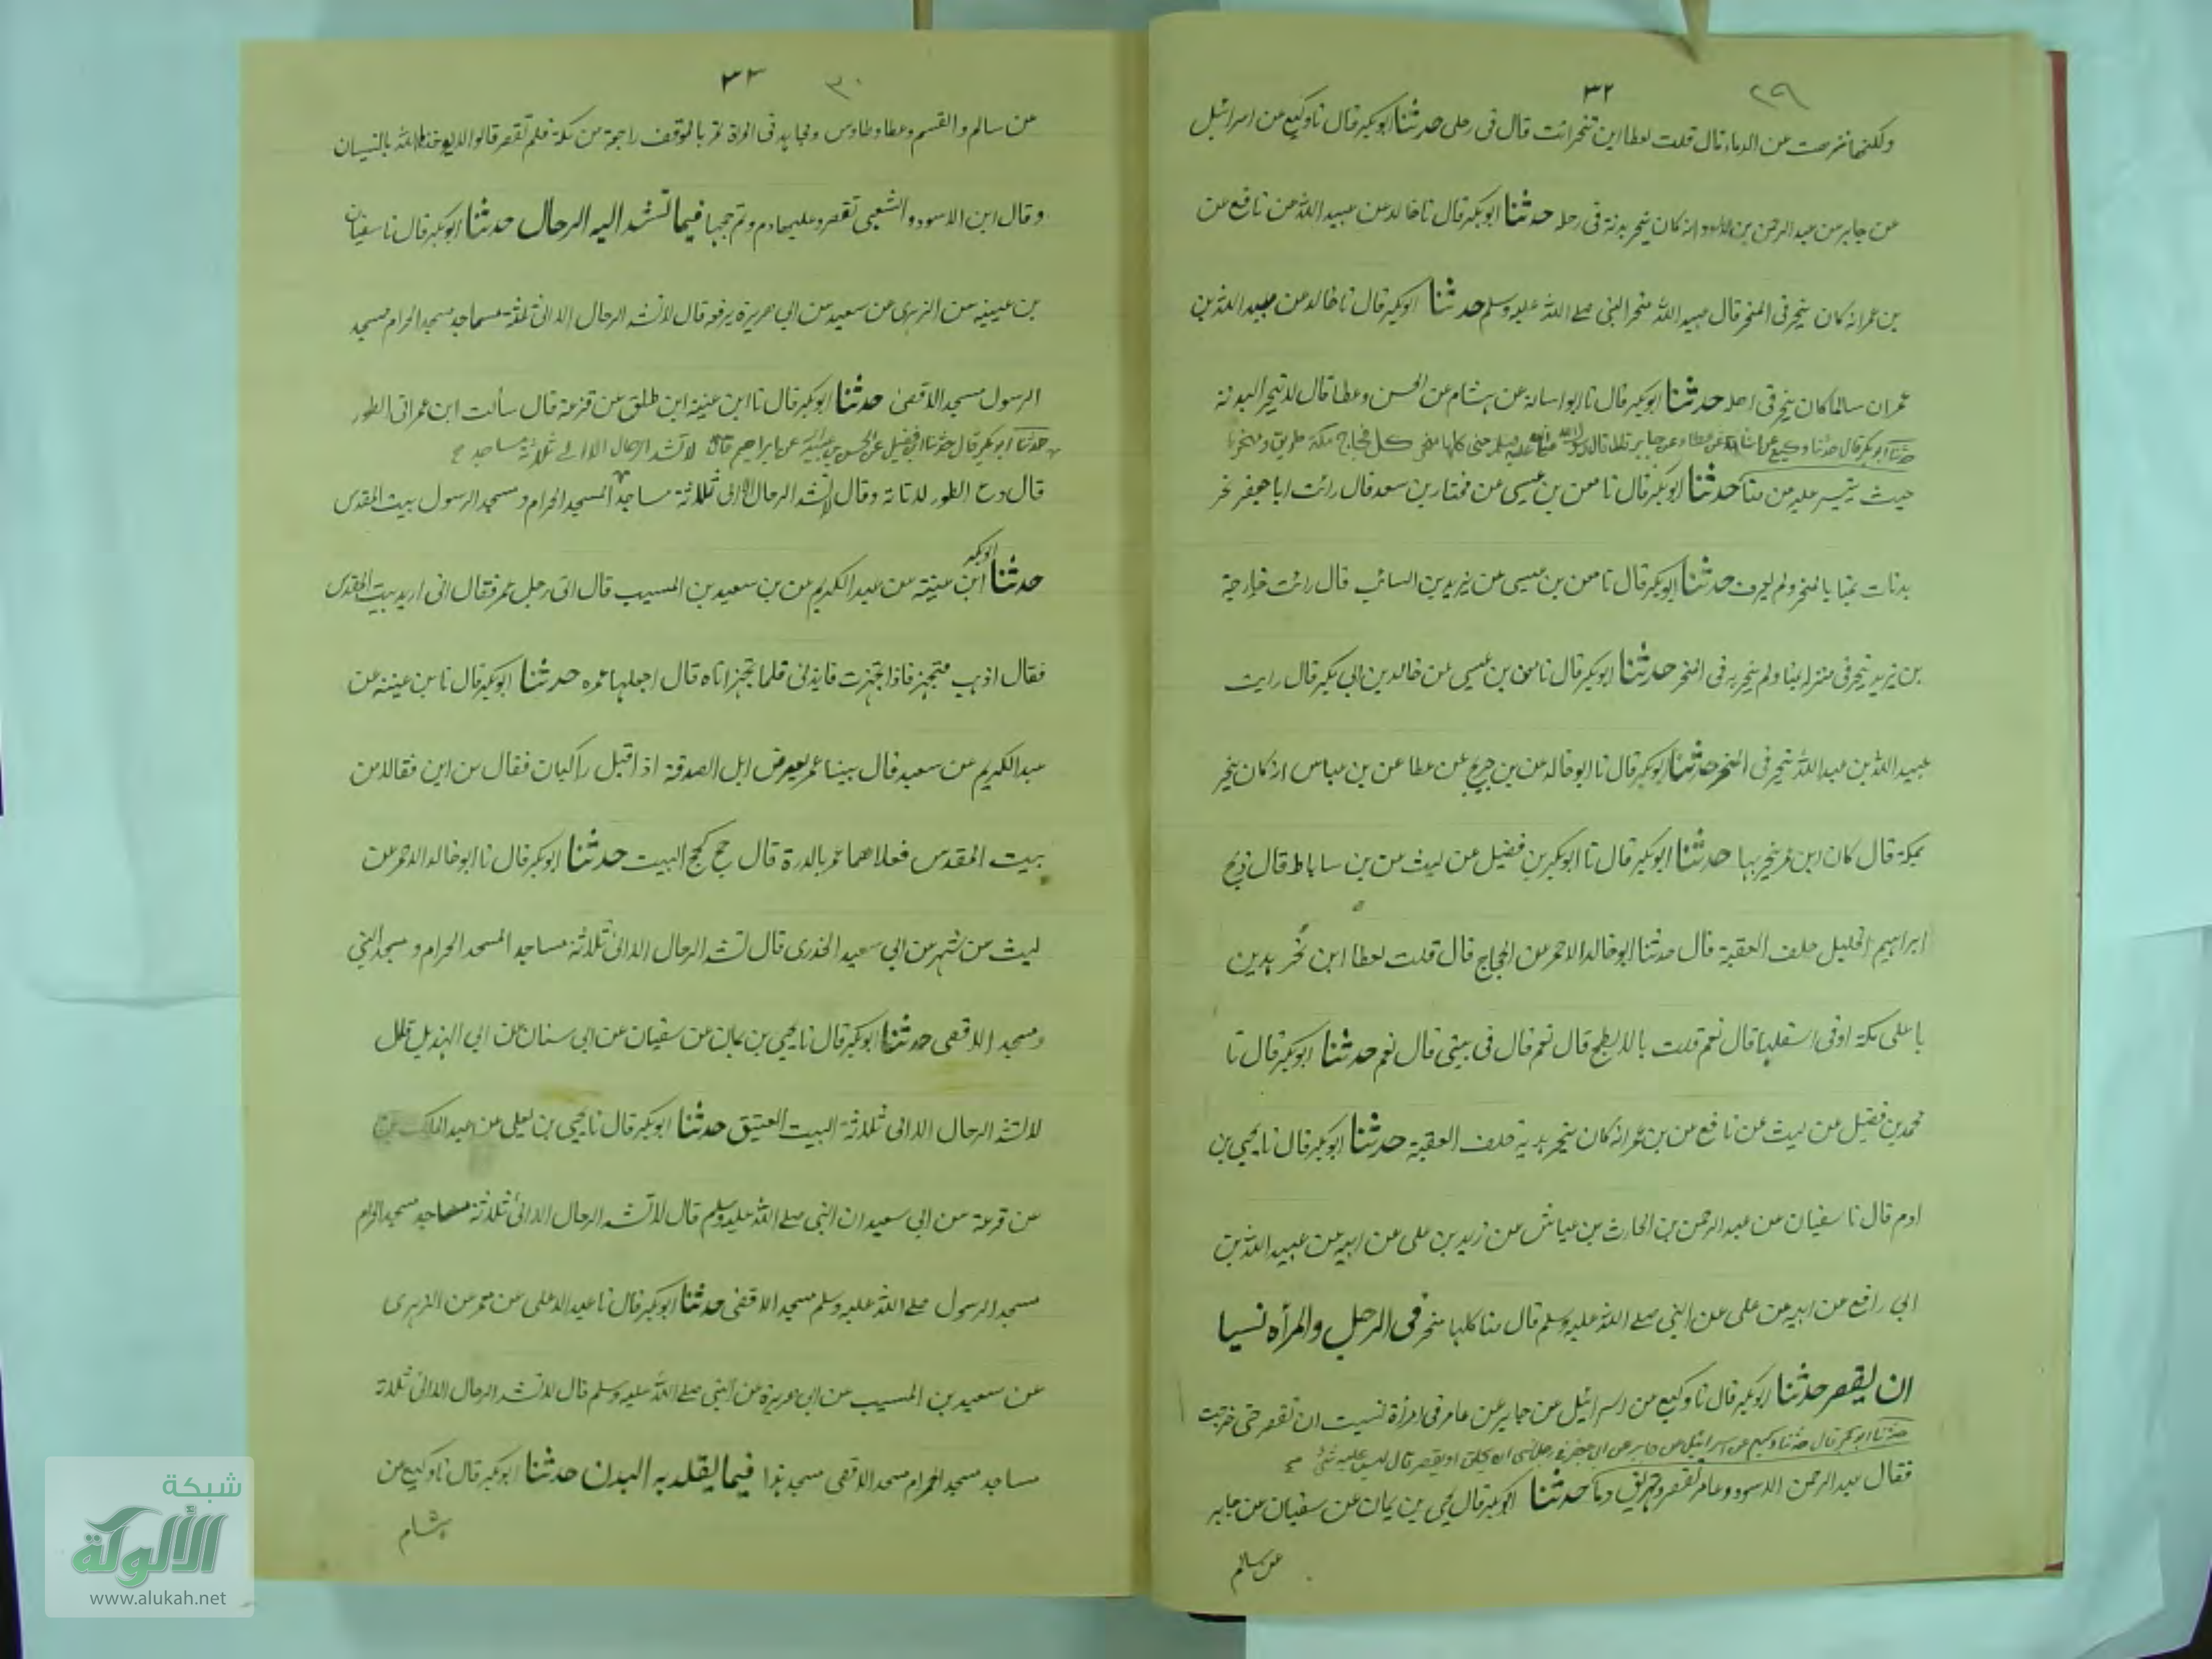 ٢٩ ٣٢
ولكنها نزهت عن الدماء قال قلت لعطا اين تنحر انت قال فى رحلى حدثنا ابوبكر قال نا وكيع عن اسرائيل
عن جابر عن عبد الرحمن بن الاسود انه كان ينحر بدنة فى رحله حدثنا ابوبكر قال نا خالد عن عبيد الله عن نافع عن
بن عمر انه كان ينحر فى المنحر قال عبيد الله منحر النبى صلے الله عليه وسلم حدثنا ابوبكر قال نا خالد عن عبيد الله بن
عمر ان سالما كان ينحر فى اهله حدثنا ابوبكر قال نا ابو اسامة عن هشام عن الحسن وعطا قال لا تنحر البدنة
حدثنا ابوبكر قال حدثنا وكيع عن اسامة عن عطا وعن جابر قال قال رسول الله صلى الله عليه وسلم منى كلها منحر كل فجاج مكة طريق ومنحر
حيث يتيسر عليه من منا حدثنا ابوبكر قال نا معن بن عيسى عن مختار بن سعد قال رائت ابا جعفر نحر
بدنات بمنا بالمنحر ولم يعرف حدثنا ابوبكر قال نا معن بن عيسى عن يزيد بن السائب قال رائت خارجة
بن يزيد ينحر فى منزله بمنا ولم ينحر به فى المنحر حدثنا ابوبكر قال نا معن بن عيسى عن خالد بن ابي بكر قال رايت
عبيد الله بن عبد الله ينحر فى المنحر حدثنا ابوبكر قال نا ابو خالد عن بن جريج عن عطا عن بن عباس انه كان ينحر
بمكة قال كان ابن عمر ينحر بها حدثنا ابوبكر قال نا ابوبكر بن فضيل عن ليث عن بن ساباط قال ذبح
ابراهيم الخليل خلف العقبة قال حدثنا ابو خالد الاحمر عن الحجاج قال قلت لعطا اين نحر بدين
با على مكة او فى اسفلها قال نعم قلت بالابطح قال نعم قال فى بيتى قال نعم حدثنا ابوبكر قال نا
محمد بن فضيل عن ليث عن نافع عن بن عمر انه كان ينحر بدنة خلف العقبة حدثنا ابوبكر قال نا يحيى بن
ادم قال نا سفيان عن عبد الرحمن بن الحارث بن عياش عن زيد بن على عن ابيه عن عبيد الله بن
ابي رافع عن ابيه عن على عن النبى صلے الله عليه وسلم قال منا كلها منحر فى الرجل والمرأه نسيا
ان يقصر حدثنا ابوبكر قال نا وكيع عن اسرائيل عن جابر عن عامر فى امرأة نسيت ان تقصر حتى خرجت
حدثنا ابوبكر قال حدثنا وكيع عن اسرائيل عن جابر عن ابى جعفر فى رجل نسى ان يحلق او يقصر قال ليس عليه شئ
فقال عبد الرحمن الاسود وعامر تقصر وتهريق دما حدثنا ابوبكر قال يحيى بن يمان عن سفيان عن جابر
عن سالم
٣٠ ٣٣
عن سالم والقسم وعطا وطاوس ومجاهد فى المراة تمر بالموقف راجعة من مكة فلم تقصر قالوا لا يواخذها الله بالنسيان
وقال ابن الاسود والشعبى تقصر وعليها دم وتم حجها فيما تشد اليه الرحال حدثنا ابوبكر قال نا سفيان
بن عيينه عن الزهرى عن سعيد عن ابي هريرة يرفعه قال لا تشد الرحال الا الى ثلثة مساجد مسجد الحرام مسجد
الرسول مسجد الاقصى حدثنا ابوبكر قال نا ابن عيينة ابن طلق عن قزعة قال سألت ابن عمر اتى الطور
حدثنا ابوبكر قال حدثنا ابن فضيل عن الحسن بن عبيد الله عن ابراهيم قال لا تشد الرحال الا الے ثلاثة مساجد
قال دع الطور لا تاته وقال لا تشد الرحال الا الى ثلاثة مساجد المسجد الحرام ومسجد الرسول بيت المقدس
حدثنا ابوبكر ابن عيينة عن عبد الكريم عن بن سعيد بن المسيب قال اتى رجل عمر فقال انى اريد بيت المقدس
فقال اذهب فتجهز فاذا تجهزت فايذنى فلما تجهز اتاه قال اجعلها عمره حدثنا ابوبكر قال نا بن عيينه عن
عبد الكريم عن سعيد قال بينا عمر يعرض ابل الصدقة اذا اقبل راكبان فقال من اين فقالا من
بيت المقدس فعلاهما عمر بالدرة قال حج كحج البيت حدثنا ابوبكر قال نا ابو خالد الاحمر عن
ليث عن شهر عن ابي سعيد الخدرى قال لا تشد الرحال الا الى ثلاثة مساجد المسجد الحرام ومسجد النبى
ومسجد الاقصى حدثنا ابوبكر قال نا يحيى بن يمان عن سفيان عن ابى سنان عن ابي الهذيل قال
لا تشد الرحال الا الى ثلاثة البيت العتيق حدثنا ابوبكر قال نا يحيى بن يعلى عن عبد الملك بن
عن قزعة عن ابي سعيد ان النبى صلے الله عليه وسلم قال لا تشد الرحال الا الى ثلاثة مساجد مسجد الحرام
مسجد الرسول صلے الله عليه وسلم مسجد الاقصى حدثنا ابوبكر قال نا عبد الاعلى عن معمر عن الزهرى
عن سعيد بن المسيب عن ابى هريرة عن النبى صلے الله عليه وسلم قال لا تشد الرحال الا الى ثلاثة
مساجد مسجد الحرام مسجد الاقصى مسجد هذا فيما يقلد به البدن حدثنا ابوبكر قال نا وكيع عن
هشام
شبكة
الألوكة
www.alukah.net